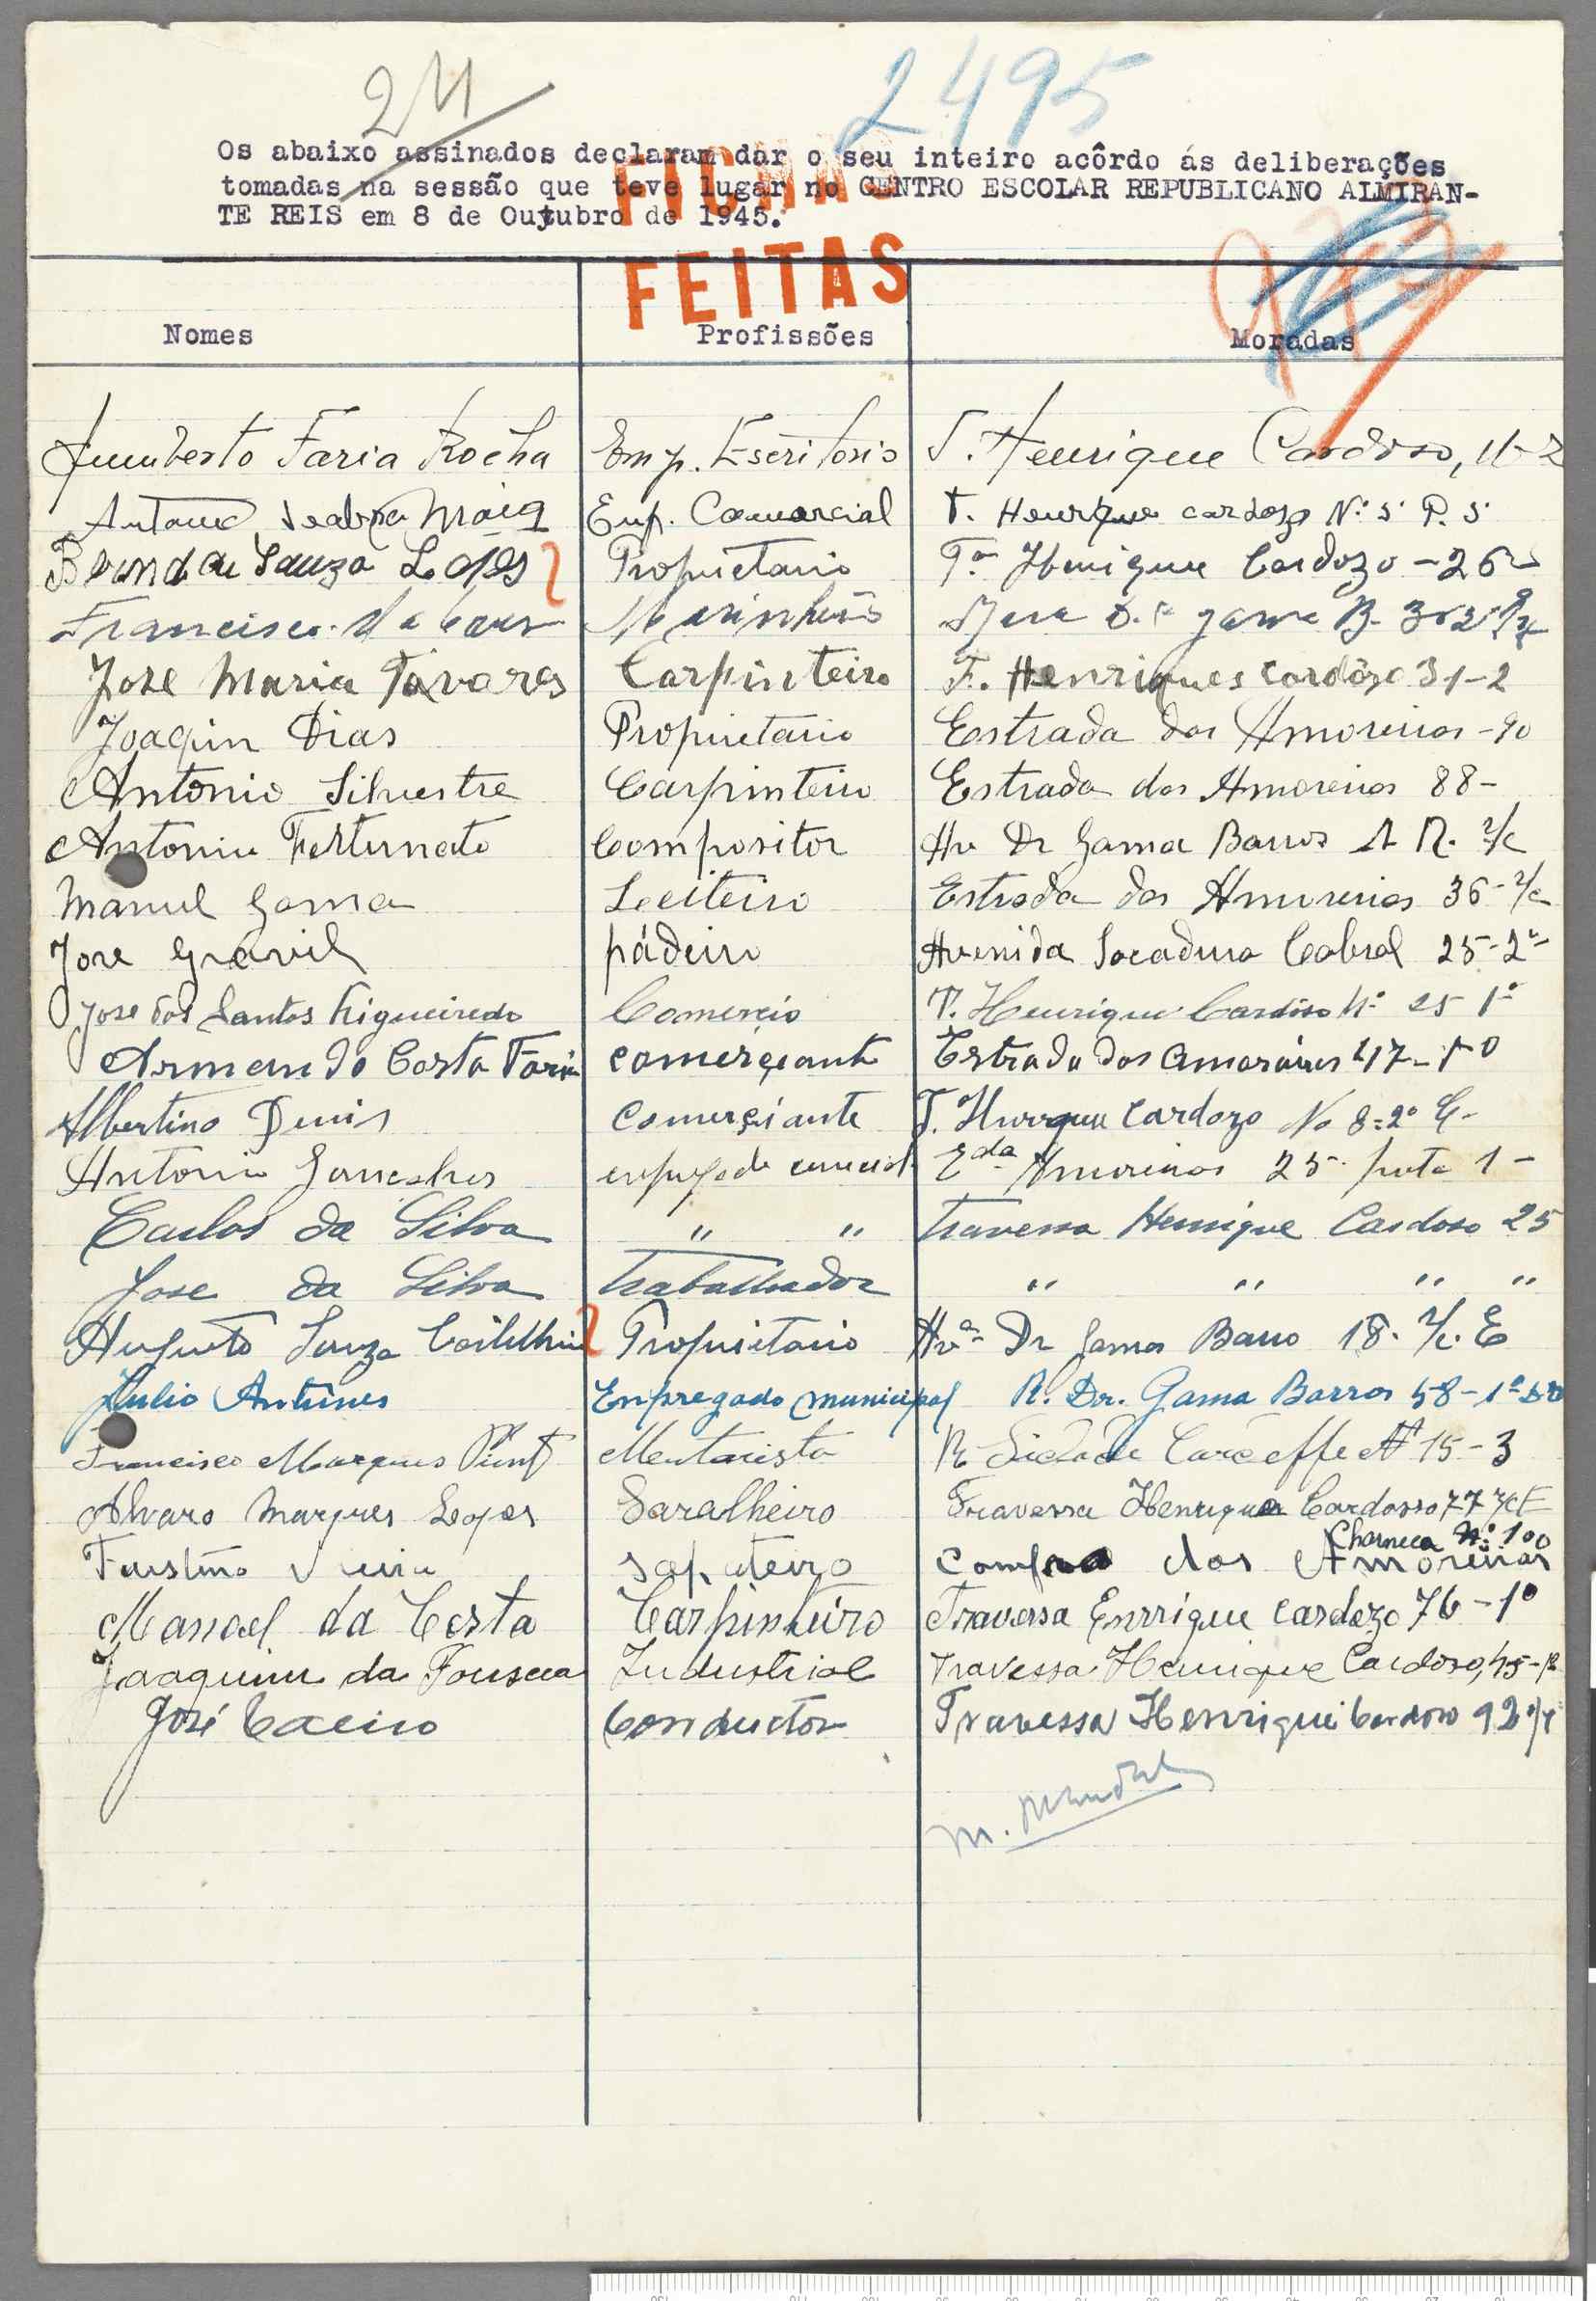 24
2495
Os abaixo assinados declaram dar o seu inteiro acôrdo ás deliberações
tomadas na sessão que teve lugar no CENTRO ESCOLAR REPUBLICANO ALMIRAN-
TE REIS em 8 de Outubro de 1945.
FICHAS
FEITAS
Nomes Profissões Moradas
Humberto Faria Rocha Emp. Escritorio T. Henrique Cardoso, 11-2
Antonio Seabra Maia Emp. Comercial T. Henrique cardozo Nº 5 P. S.
Souza Lopes Proprietario Tª Henrique Cardozo - 26
Francisco da Marinheiro Gama B.
Jose Maria Tavares Carpinteiro T. Henriques Cardôzo 31-2
Joaquin Dias Proprietario Estrada das Amoreiras - 90
Antonio Silvestre Carpinteiro Estrada das Amoreiras 88-
Antonio Fortunato Compositor Av Dr Gama Barros r/c
Manuel Gama Leiteiro Estrada das Amoreiras 36- r/c
Jose Gravil pádeiro Avenida Sacadura Cabral 25-2º
Jose dos Santos Figueiredo Comercio T. Henrique Cardoso Nº 25 1º
Armando Costa Faria comerçante Estrada das Amoráiras 117-1º
Albertino Denis Comerçiante T. Cardozo No 8=2º E-
Antonio Goncalves Eda Amoreiras 25 porta 1-
Carlos da Silva " " Travessa Henrique Cardoso 25
Jose da Silva Trabalhador " " " "
Augusto Souza Proprietario Avª Dr Gama Barro 18. r/c. E
Julio Antunes Empregado municipal R. Dr. Gama Barros 58-1º Dto
Francisco Marques R. Cidade 15-3
Alvaro Marques Lopes Saralheiro Travessa Henrique Cardosso 77 r/c E
Charneca Nº 100
Faustino Vieira sapateiro dos Amoreiras
Manoel da Costa Carpinteiro Travessa Enrrique Cardozo 76-1º
Joaquim da Fonseca Industrial Travessa Henrique Cardoso, 45-
José Caeiro Conductor Travessa Henrique Cardoso 92 r/c